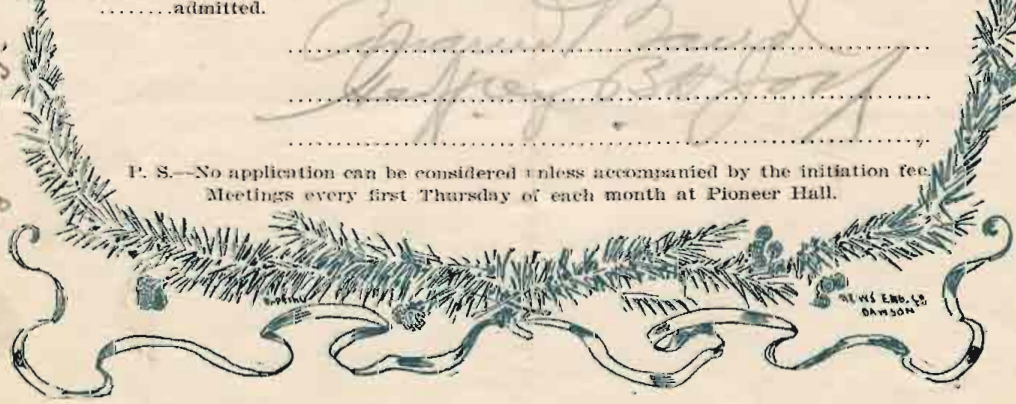 ........admitted.
P. S.—No application can be considered unless accompanied by the initiation fee.
Meetings every first Thursday of each month at Pioneer Hall.
NEWS ENG. CO
DAWSON